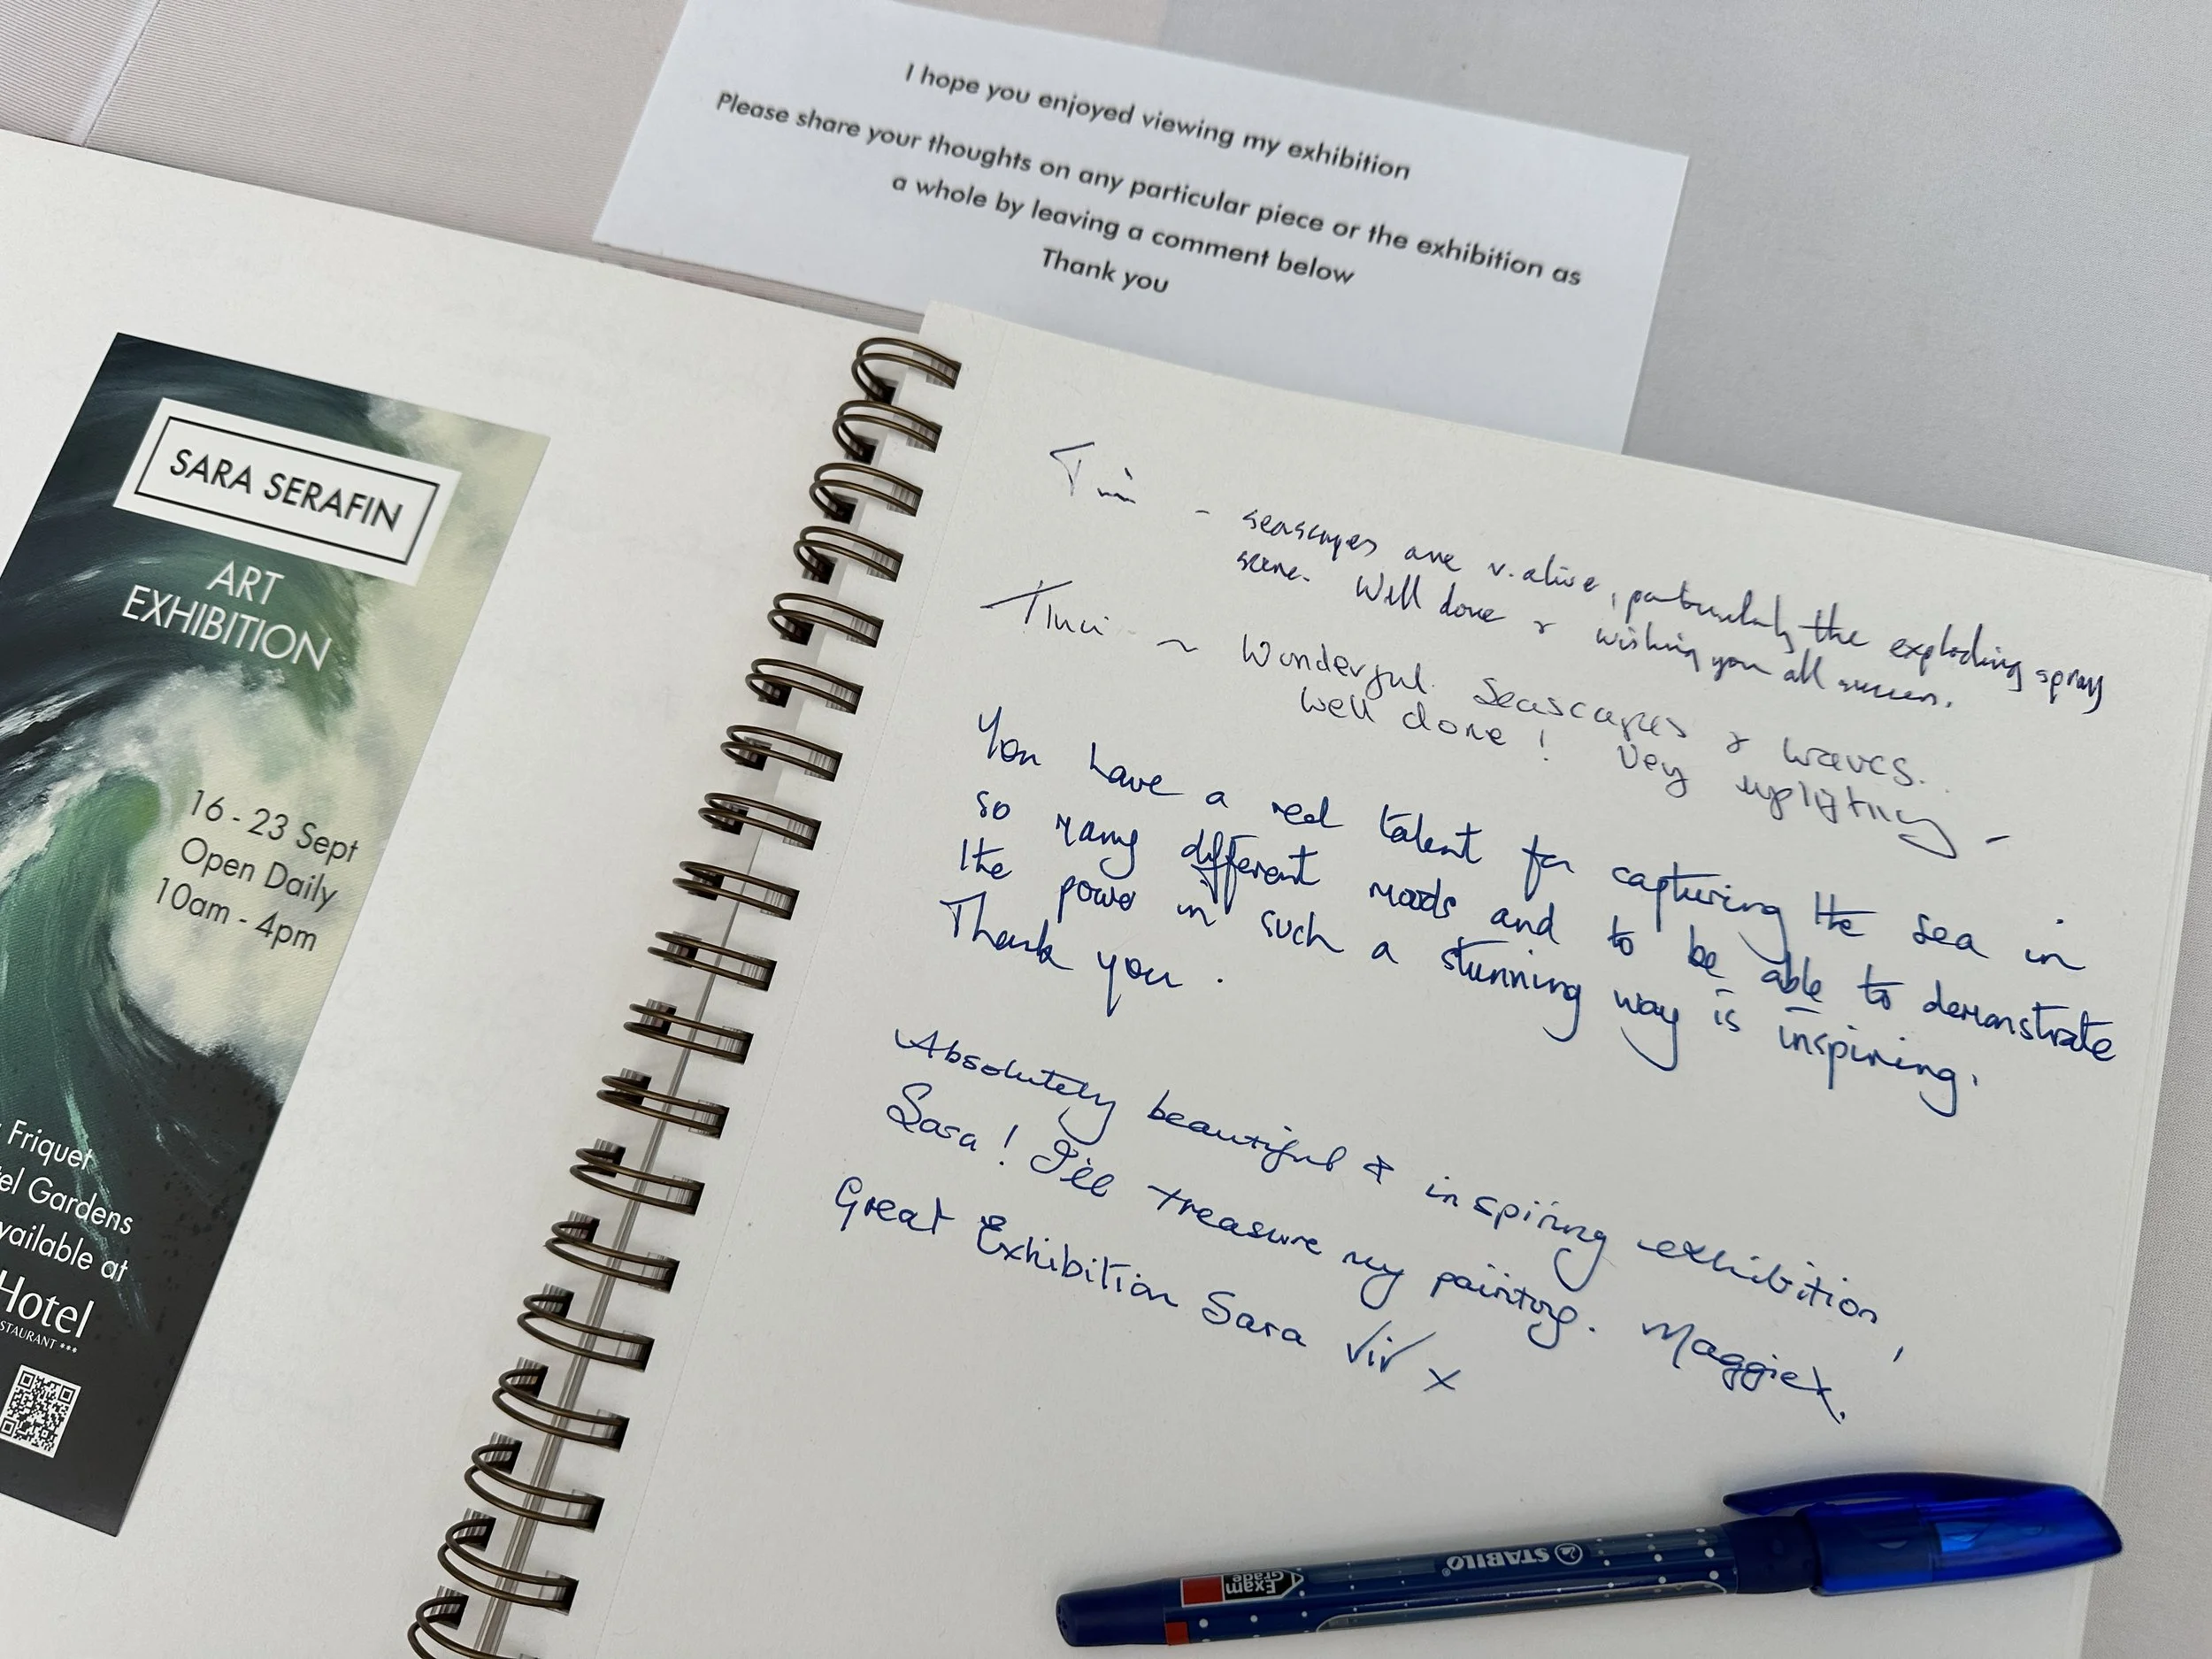 I hope you enjoyed viewing my exhibition
Please share your thoughts on any particular piece or the exhibition as
a whole by leaving a comment below
Thank you
SARA SERAFIN
ART
EXHIBITION
16 - 23 Sept
Open Daily
10am - 4pm
Friquet
Gardens
at
Hotel
- seascapes are v. alive, particularly the exploding spray
scene. Well done & wishing you all success.
~ Wonderful Seascapes & waves.
Well done! Vey uplifting -
You have a real talent for capturing the sea in
so many different moods and to be able to demonstrate
the power in such a stunning way is inspiring.
Thank you.
Absolutely beautiful & inspiring exhibition,
Sara! I'll treasure my painting. Maggie x.
Great Exhibition Sara Viv x
STABILO
Exam
Grade